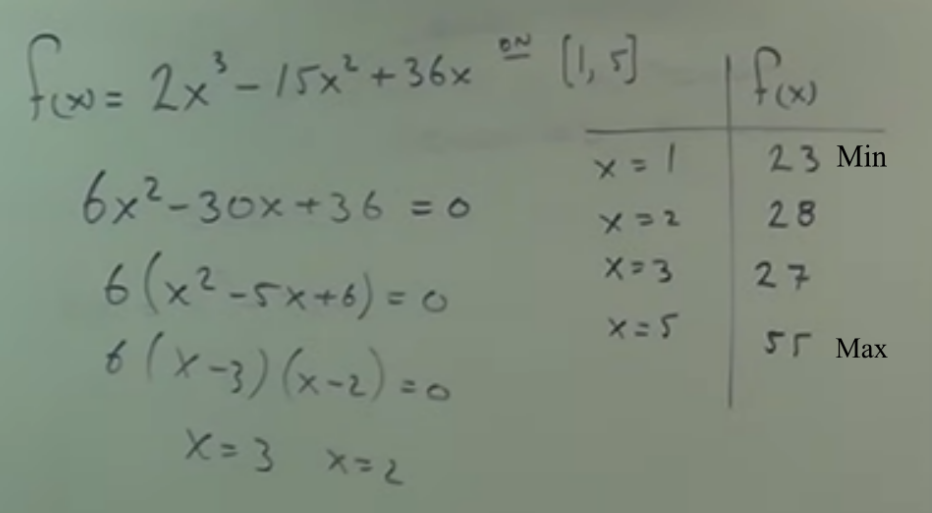 f(x) = 2x³ - 15x² + 36x ON [1, 5]
6x² - 30x + 36 = 0
6(x² - 5x + 6) = 0
6(x - 3)(x - 2) = 0
x = 3 x = 2
f(x)
x = 1 23 Min
x = 2 28
x = 3 27
x = 5 55 Max